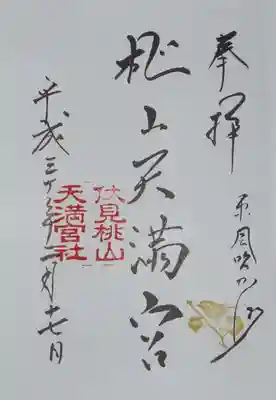 奉拝
東風吹かば
桃山天満宮
伏見桃山
天満宮社
平成三十年二月十七日